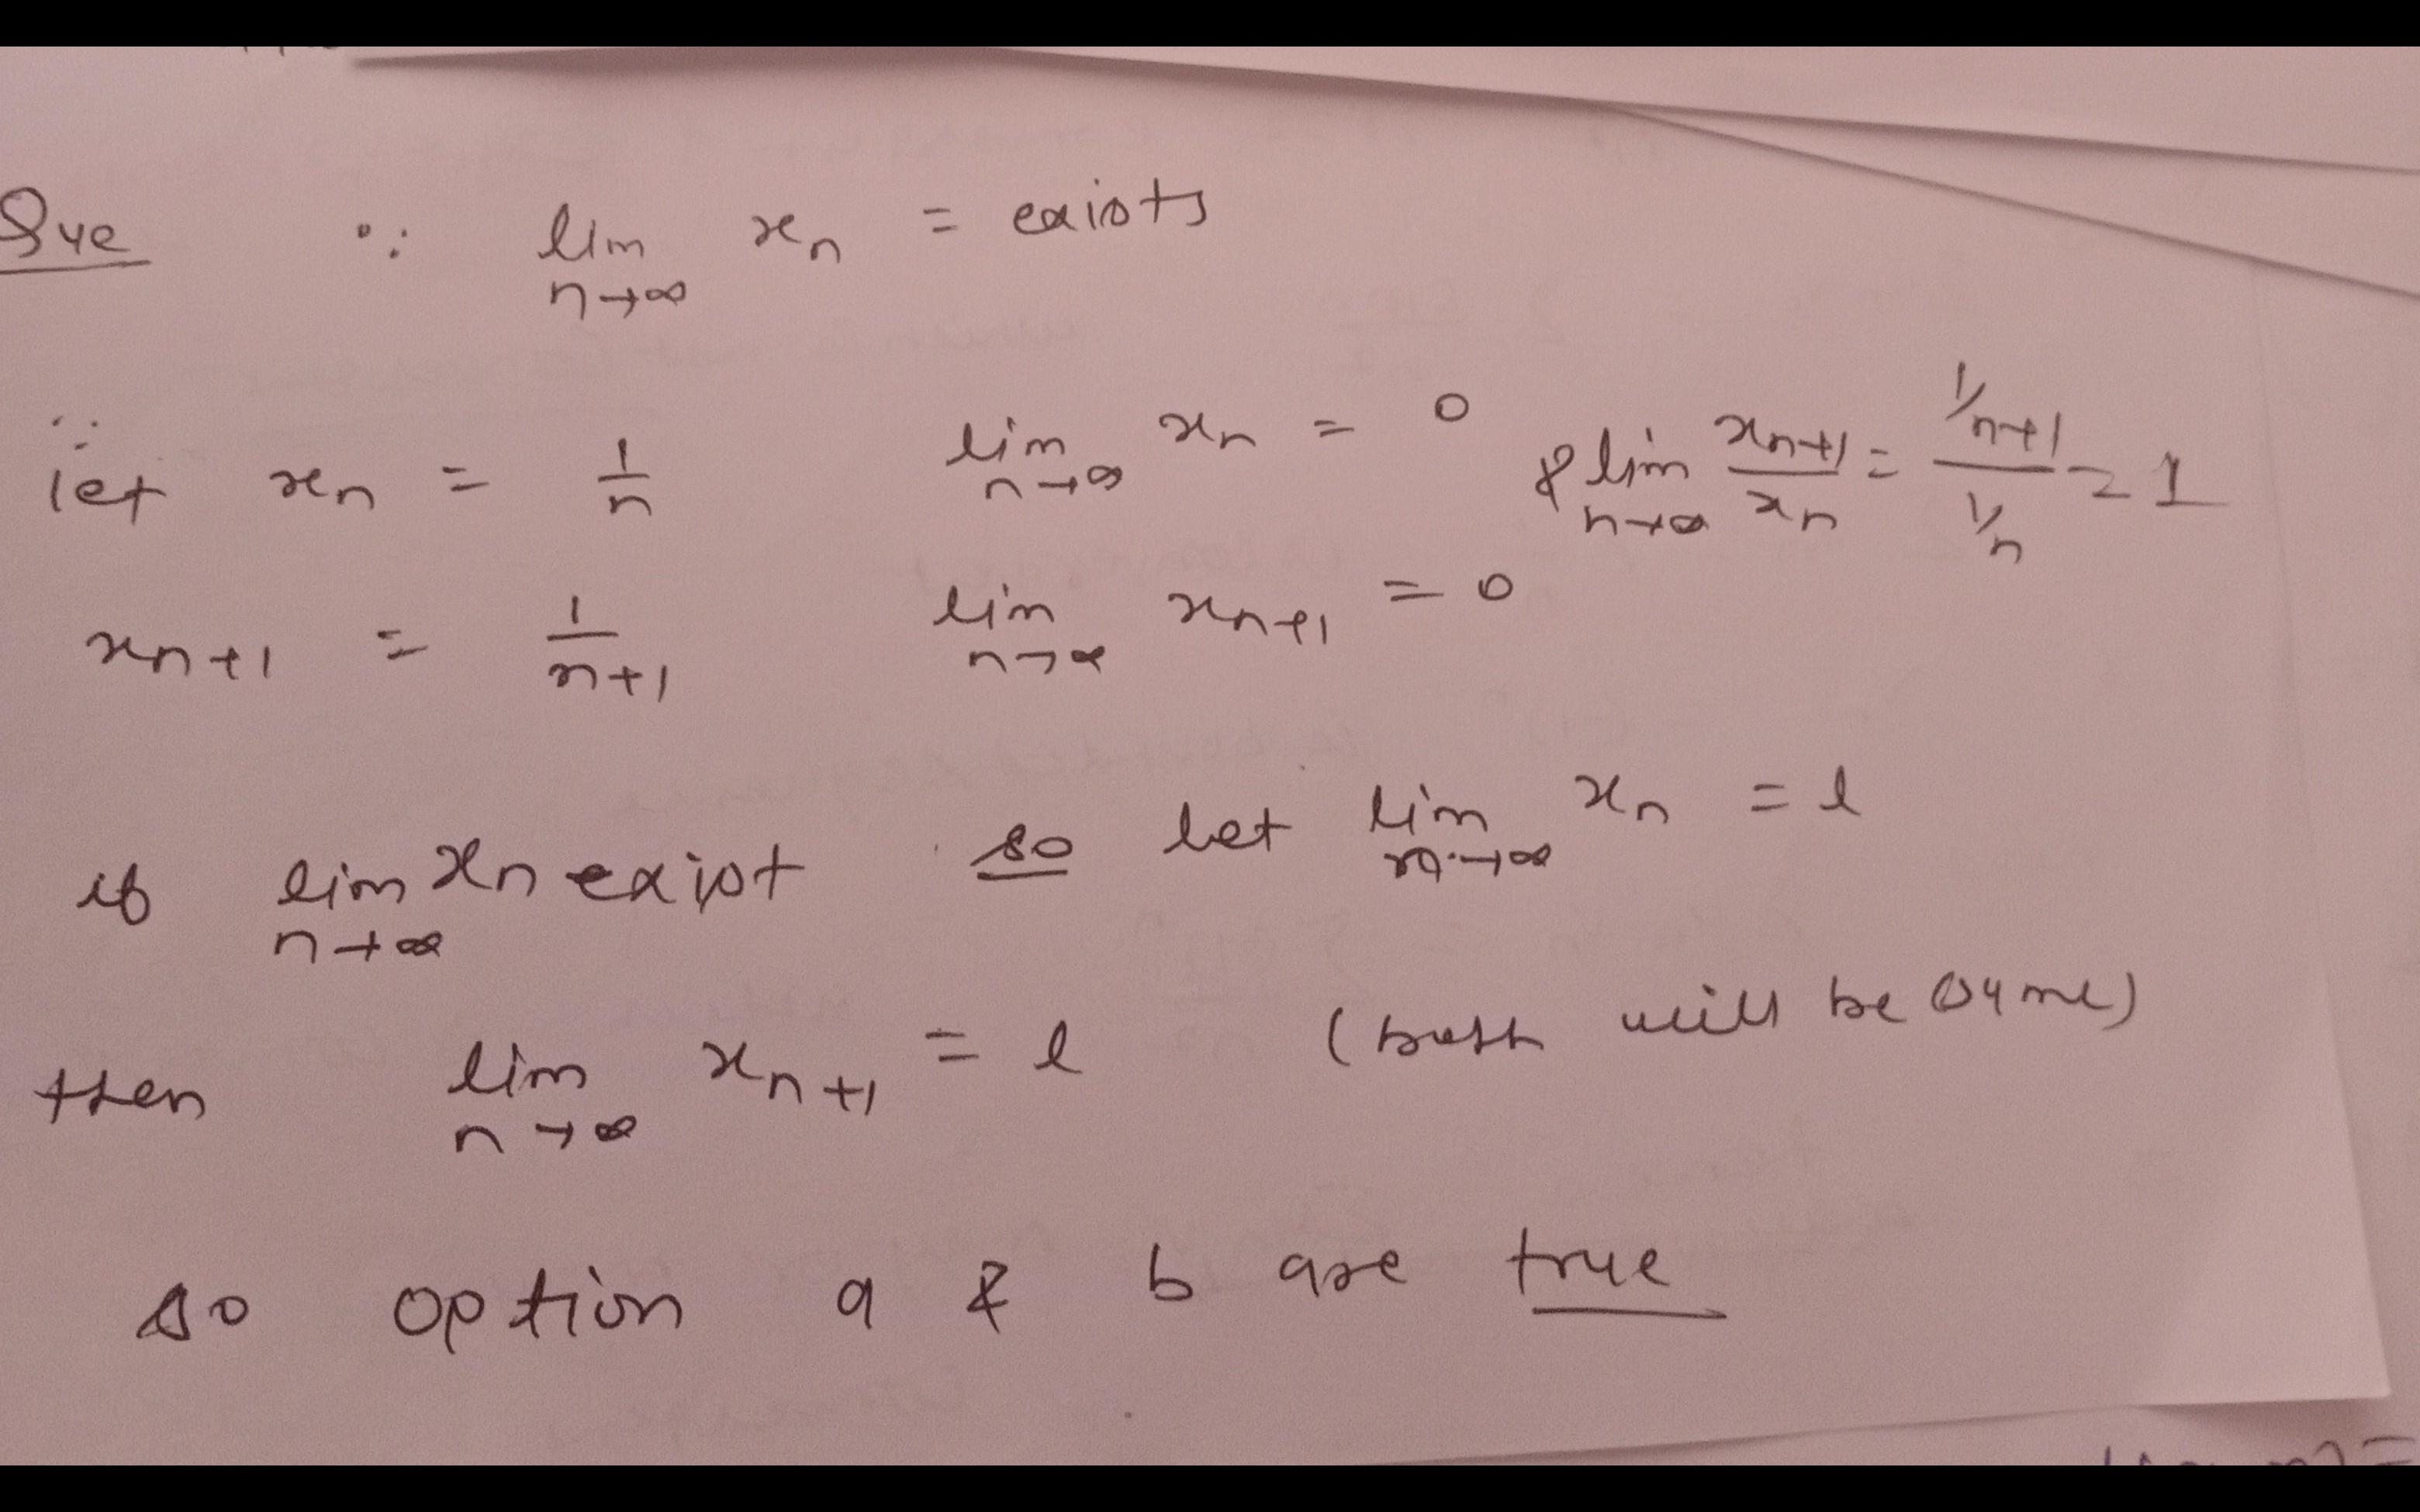 Que ∵ lim n→∞ xn = exists
let xn = 1/n lim n→∞ xn = 0 & lim n→∞ xn+1/xn = (1/n+1)/(1/n) = 1
xn+1 = 1/n+1 lim n→∞ xn+1 = 0
if lim n→∞ xn exist so let lim n→∞ xn = l
then lim n→∞ xn+1 = l (both will be same)
so option a & b are true